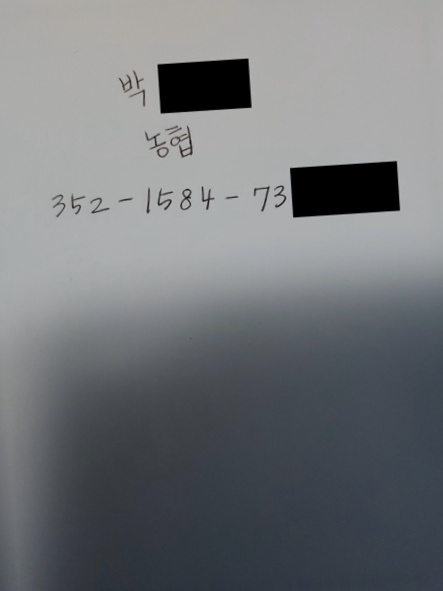 박
농협
352-1584-73